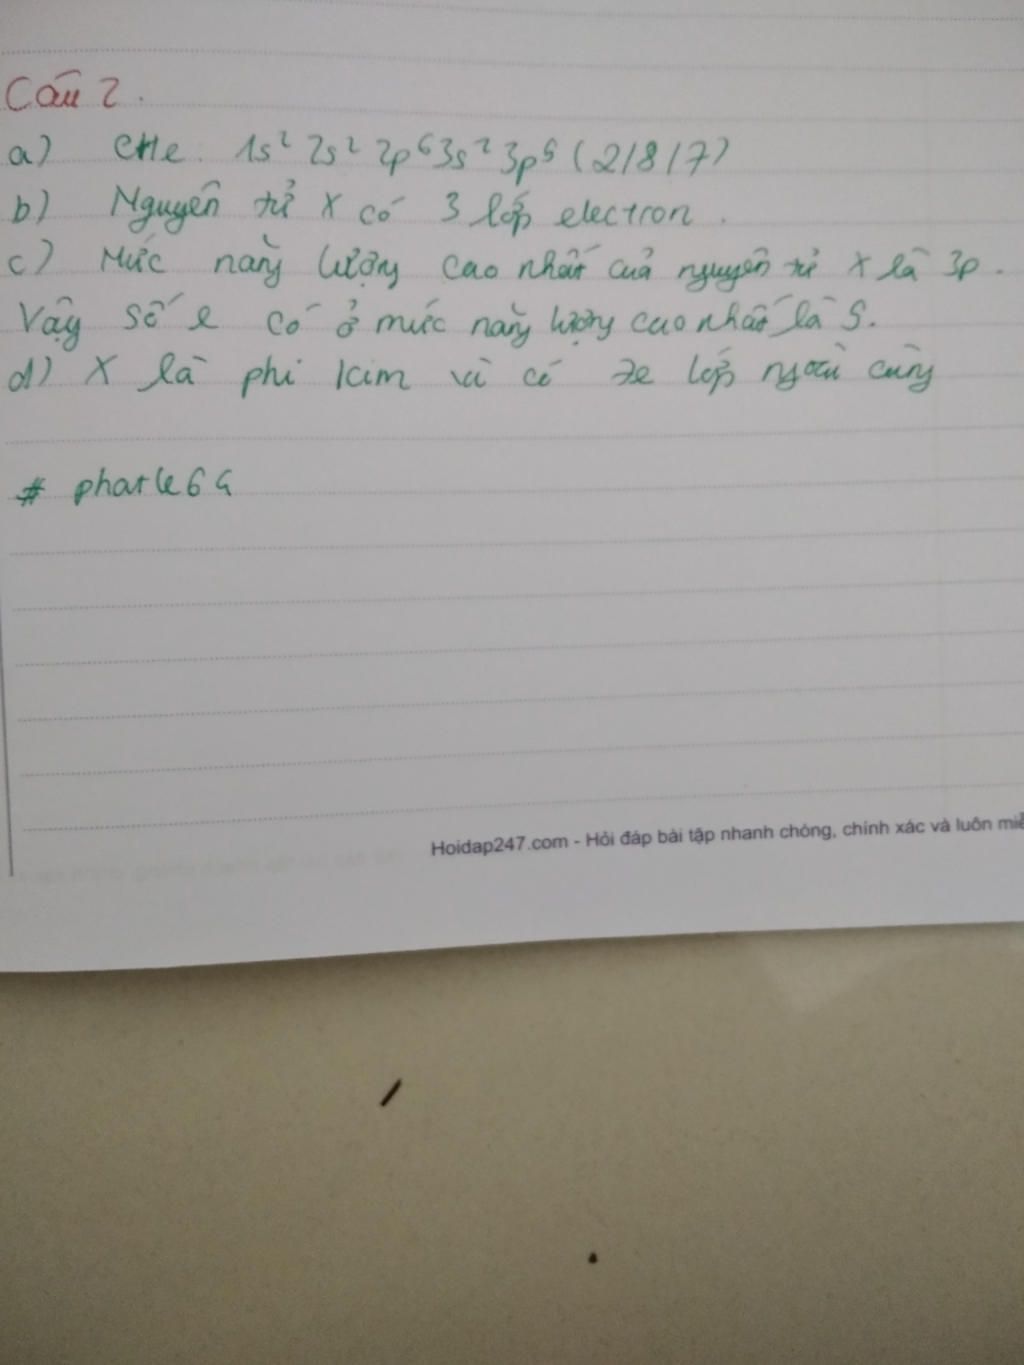 Câu 2.
a) CHe: 1s² 2s² 2p⁶ 3s² 3p⁵ (2/8/7)
b) Nguyên tử X có 3 lớp electron.
c) Mức năng lượng cao nhất của nguyên tử X là 3p.
Vậy số e có ở mức năng lượng cao nhất là 5.
d) X là phi kim vì có 7e lớp ngoài cùng
Hoidap247.com - Hỏi đáp bài tập nhanh chóng, chính xác và luôn